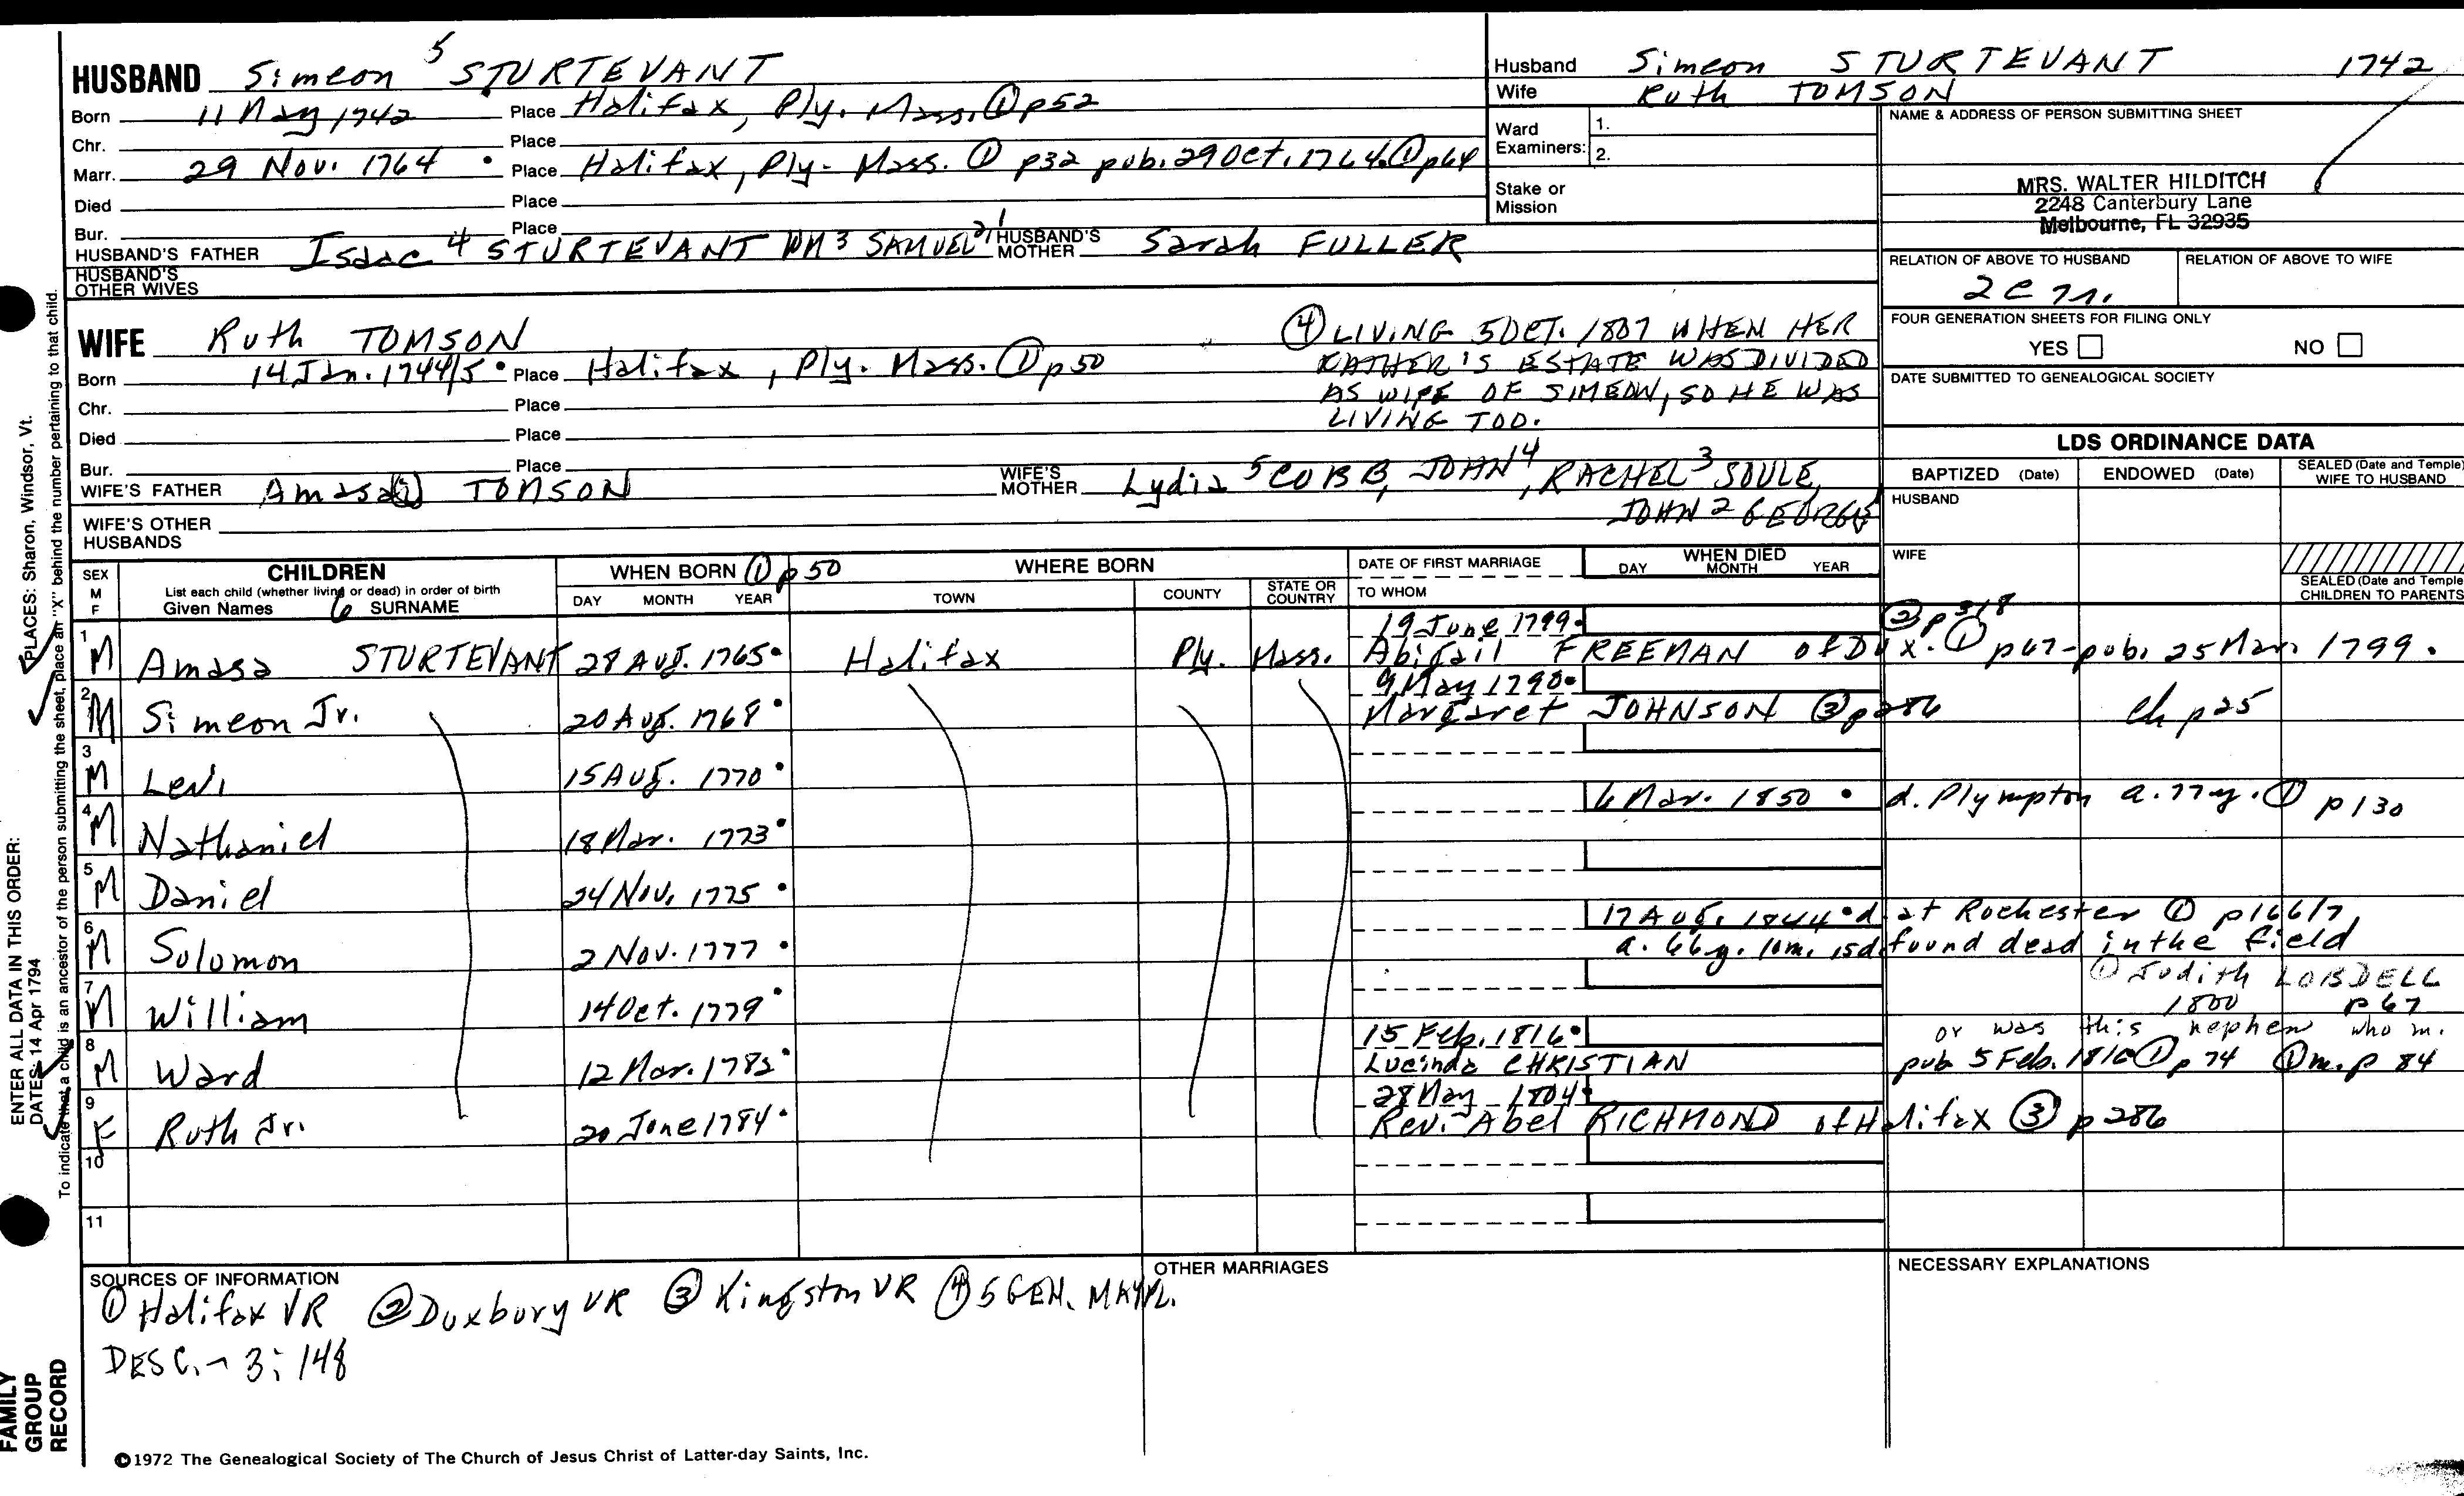 HUSBAND Simeon 5 STURTEVANT
Born 11 May 1742 Place Halifax, Ply. Mass. ① p52
Chr. Place
Marr. 29 Nov. 1764 • Place Halifax, Ply- Mass. ① p32 pub. 29 Oct. 1764. ① p64
Died Place
Bur. Place
HUSBAND'S FATHER Isaac 4 STURTEVANT WM 3 SAMUEL 2 1 HUSBAND'S MOTHER Sarah FULLER
HUSBAND'S OTHER WIVES
Husband Simeon STURTEVANT 1742
Wife Ruth TOMSON
Ward Examiners: 1.
2.
Stake or Mission
NAME & ADDRESS OF PERSON SUBMITTING SHEET
MRS. WALTER HILDITCH
2248 Canterbury Lane
Melbourne, FL 32935
RELATION OF ABOVE TO HUSBAND RELATION OF ABOVE TO WIFE
FOUR GENERATION SHEETS FOR FILING ONLY
YES NO
DATE SUBMITTED TO GENEALOGICAL SOCIETY
WIFE Ruth TOMSON
Born 14 Jan. 1744/5 • Place Halifax, Ply. Mass. ① p50
Chr. Place
Died Place
Bur. Place
④ LIVING 5 OCT. 1807 WHEN HER
FATHER'S ESTATE WAS DIVIDED
AS WIFE OF SIMEON, SO HE WAS
LIVING TOO.
WIFE'S FATHER Amasa TOMSON WIFE'S MOTHER Lydia 5 COBB, JOHN 4, RACHEL 3 SOULE,
JOHN 2 GEORGE 1
WIFE'S OTHER HUSBANDS
LDS ORDINANCE DATA
BAPTIZED (Date) ENDOWED (Date) SEALED (Date and Temple) WIFE TO HUSBAND
HUSBAND
WIFE
SEALED (Date and Temple) CHILDREN TO PARENTS
SEX M F
CHILDREN
List each child (whether living or dead) in order of birth
Given Names 6 SURNAME
WHEN BORN ① p50
DAY MONTH YEAR
WHERE BORN
TOWN COUNTY STATE OR COUNTRY
DATE OF FIRST MARRIAGE
TO WHOM
WHEN DIED
DAY MONTH YEAR
19 June 1799. ② p318
1 M Amasa STURTEVANT 28 Aug. 1765• Halifax Ply. Mass. Abigail FREEMAN of Dux. ① p67-pub. 25 Mar. 1799.
9 May 1790•
2 M Simeon Jr. 20 Aug. 1768• Margaret JOHNSON ③ p286 Ch p25
3 M Levi 15 Aug. 1770•
6 Mar. 1850 • d. Plympton a. 77y. ① p130
4 M Nathaniel 18 Mar. 1773•
5 M Daniel 24 Nov. 1775 •
17 Aug. 1844 • d. at Rochester ① p166/7,
6 M Solomon 2 Nov. 1777 • a. 66y. 10m. 15d. found dead in the field
① Judith LOBDELL
7 M William 14 Oct. 1779• 1800 p67
15 Feb. 1816• or was this nephew who m.
8 M Ward 12 Mar. 1782• Lucinda CHRISTIAN pub 5 Feb. 1816 ① p74 ① m. p 84
28 May 1804•
9 F Ruth Jr. 20 June 1784• Rev. Abel RICHMOND of Halifax ③ p286
10
11
SOURCES OF INFORMATION
① Halifax VR ② Duxbury VR ③ Kingston VR ④ 5 GEN. MAYFL.
DESC. - 3: 148
OTHER MARRIAGES
NECESSARY EXPLANATIONS
©1972 The Genealogical Society of The Church of Jesus Christ of Latter-day Saints, Inc.
ENTER ALL DATA IN THIS ORDER: PLACES: Sharon, Windsor, Vt.
DATES: 14 Apr 1794
To indicate that a child is an ancestor of the person submitting the sheet, place an "X" behind the number pertaining to that child.
FAMILY
GROUP
RECORD